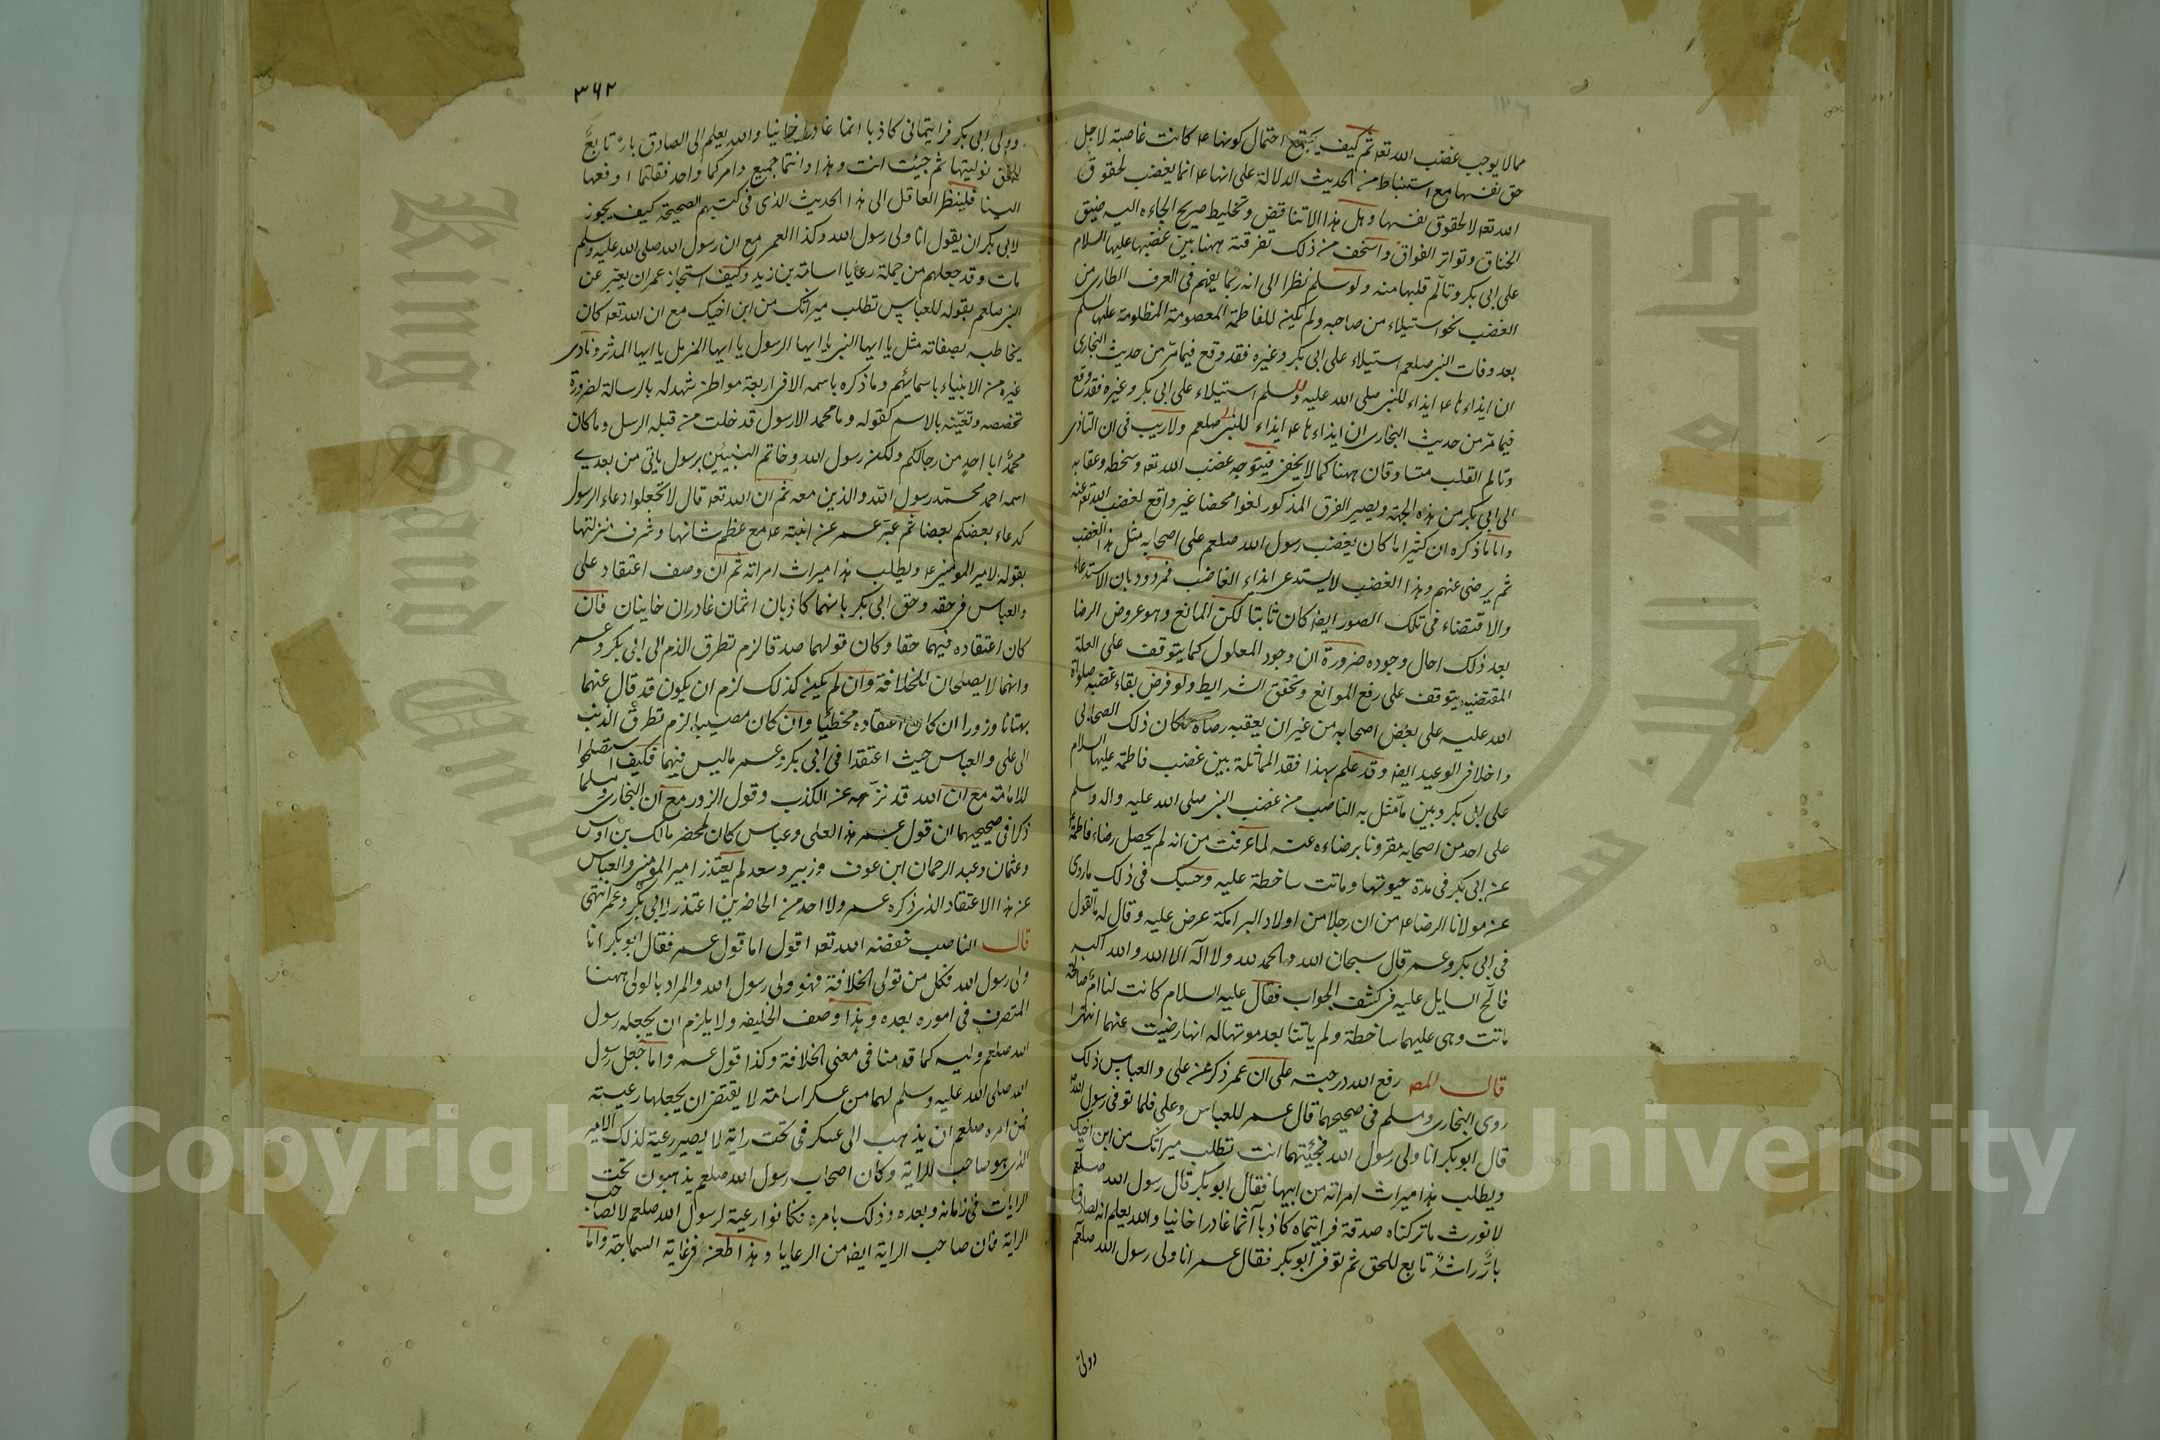 مما لا يوجب غضب الله تعه ثم كيف يجتمع احتمال كونها ع كانت غاصبة لاجل
حق نفسها مع استنباط من الحديث الدلالة على انها ع انما يغضب لحقوق
الله تعه لا لحقوق نفسها وهل هذا الا تناقض وتخليط صريح الجاءه اليه ضيق
الخناق وتواتر الفواق واسخف من ذلك تفرقته ههنا بين غضبها عليها السلام
على ابى بكر وتألم قلبها منه ولو سلم نظرا الى انه ربما يفهم فى العرف الطارى من
الغضب نحو استيلاء من صاحبه ولم يكن للفاطمة المعصومة المظلومة عليها سلم
بعد وفات النبى صلعم استيلاء على ابى بكر وغيره فقد وقع فيما مر من حديث البخارى
ان ايذاءها ع ايذاء للنبى صلى الله عليه وسلم استيلاء على ابى بكر وغيره فقد وقع
فيما مر من حديث البخارى ان ايذاءها ع ايذاء للنبى صلعم ولا ريب فى ان التاذى
وتالم القلب متساوقان ههنا كما لا يخفى فيتوجه غضب الله تعه وسخطه وعقابه
الى ابى بكر من هذه الجهة ويصير الفرق المذكور لغوا محضا غير واقع لغضب الله تعه عنه
واما ما ذكره ان كثيرا ما كان يغضب رسول الله صلعم على اصحابه مثل هذا الغضب
ثم يرضى عنهم وهذا الغضب لا يستدعى ايذاء الغاضب فمردود بان الاستدعاء
والاقتضاء فى تلك الصور ايضا كان ثابتا لكن المانع وهو عروض الرضا
بعد ذلك احال وجوده ضرورة ان وجود المعلول كما يتوقف على العلة
المقتضيه يتوقف على رفع الموانع وتحقق الشرايط ولو فرض بقاء غضبه صلواة
الله عليه على بعض اصحابه من غير ان يعقبه رضاه لكان ذلك الصحابى
داخلا فى الوعيد ايضا وقد علم بهذا فقد المماثلة بين غضب فاطمة عليها السلام
على ابى بكر وبين ما مثل به الناصب من غضب النبى صلى الله عليه واله وسلم
على احد من اصحابه مقرونا برضاءه عنه لما عرفت من انه لم يحصل رضاء فاطمة
عن ابى بكر فى مدة حيوتها وماتت ساخطة عليه وحسبك فى ذلك ما روى
عن مولانا الرضا ع من ان رجلا من اولاد البرامكة عرض عليه وقال له ما تقول
فى ابى بكر وعمر قال سبحان الله والحمد لله ولا اله الا الله والله اكبر
فالح السايل عليه فى كشف الجواب فقال عليه السلام كانت لنا ام صالحة
ماتت وهى عليهما ساخطة ولم ياتنا بعد موتها انها رضيت عنهما انتهى
قال المص رفع الله درجته على ان عمر ذكر عن على والعباس ذلك
روى البخارى ومسلم فى صحيحهما قال عمر للعباس وعلى فلما توفى رسول الله
قال ابو بكر انا ولى رسول الله فجئتهما انت تطلب ميراثك من ابن اخيك
ويطلب هذا ميراث امراته من ابيها فقال ابو بكر قال رسول الله صلعم
لا نورث ما تركناه صدقة فرايتماه كاذبا آثما غادرا خانيا والله يعلم انه لصادق
بار راشد تابع للحق ثم توفى ابو بكر فقال عمر انا ولى رسول الله صلعم
وولى
٣٦٢
وولى ابى بكر فرايتمانى كاذبا اثما غادرا خانيا والله يعلم انى لصادق بار تابع
للحق فوليتها ثم جئت انت وهذا وانتما جميع وامركما واحد فقلتما ادفعها
الينا فلينظر العاقل الى هذا الحديث الذى فى كتبهم الصحيحة كيف يجوز
لابى بكر ان يقول انا ولى رسول الله وكذا العمر مع ان رسول الله صلى الله عليه وسلم
مات وقد جعلهم من جملة رعايا اسامة بن زيد وكيف استجاز عمر ان يعبر عن
النبى صلعم بقوله للعباس تطلب ميراثك من ابن اخيك مع ان الله تعه كان
يخاطبه بصفاته مثل يا ايها النبى يا ايها الرسول يا ايها المزمل يا ايها المدثر ونادى
غيره من الانبياء باسمائهم وما ذكره باسمه الا فى اربعة مواطن شهد له بالرسالة لضرورة
تخصصه وتعينه بالاسم كقوله وما محمد الا رسول قد خلت من قبله الرسل وما كان
محمد ابا احد من رجالكم ولكن رسول الله وخاتم النبيين برسول ياتى من بعدى
اسمه احمد محمد رسول الله والذين معه ثم ان الله تعه قال لا تجعلوا دعاء الرسول
كدعاء بعضكم بعضا ثم عبر عمر عن ابنته ع مع عظم شانها وشرف منزلتها
بقوله لامير المومنين ع ويطلب هذا ميراث امراته ثم ان وصف اعتقاد على
والعباس فى حقه وحق ابى بكر بانهما كاذبان اثمان غادران خاينان فان
كان اعتقاده فيهما حقا وكان قولهما صدقا لزم تطرق الذم الى ابى بكر وعمر
وانهما لا يصلحان للخلافة وان لم يكن كذلك لزم ان يكون قد قال عنهما
بهتانا وزورا ان كان اعتقاده مخطئا وان كان مصيبا لزم تطرق الذنب
الى على والعباس حيث اعتقدا فى ابى بكر وعمر ما ليس فيهما فكيف استصلحوا
للامامة مع ان الله قد نزهه عن الكذب وقول الزور مع ان البخارى ومسلما
ذكرا فى صحيحيهما ان قول عمر هذا لعلى وعباس كان بمحضر مالك بن اوس
وعثمان وعبد الرحمان ابن عوف وزبير وسعد لم يعتذر امير المومنين والعباس
عن هذا الاعتقاد الذى ذكره عمر ولا احد من الحاضرين اعتذر لابى بكر وعمر انتهى
قال الناصب خفضه الله تعه اقول اما قول عمر فقال ابو بكر انا
ولى رسول الله فكل من تولى الخلافة فهو ولى رسول الله والمراد بالولى ههنا
المتصرف فى اموره بعده وهذا وصف الخليفه ولا يلزم ان يجعله رسول
الله صلعم وليه كما قدمنا فى معنى الخلافة وكذا قول عمر واما جعل رسول
الله صلى الله عليه وسلم لهما من عسكر اسامة لا يقتضى ان يجعلها رعيته
فمن امره صلعم ان يذهب الى عسكر فى تحت راية لا يصير رعية لذلك الامير
الذى هو صاحب الراية وكان اصحاب رسول الله صلعم يذهبون تحت
الرايات فى زمانه وبعده وذلك بامره فكانوا رعية لرسول الله صلعم لا لصاحب
الراية فان صاحب الراية ايضا من الرعايا وهذا طعن فى غاية السماجة واما
Copyright © King Saud University
King Saud University
جامعة الملك سعود